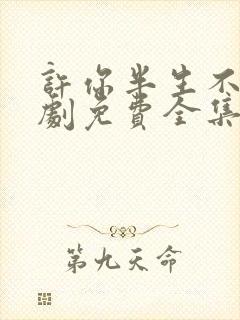 許你半生不
劇免費全集
第九天命